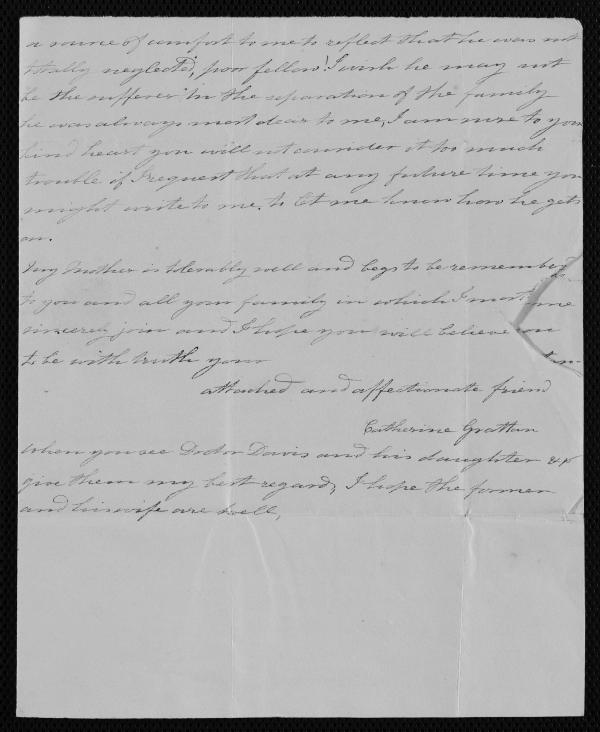 a source of comfort to me to reflect that he was not
totally neglected, poor fellow! I wish he may not
be the sufferer in the separation of the family
he was always most dear to me, I am sure to your
kind heart you will not consider it too much
trouble if I request that at any future time you
might write to me, to let me know how he gets
on.
My Mother is tolerably well and begs to be remembered
to you and all your family in which I most
sincerely join and I hope you will believe me
to be with truth your
attached and affectionate friend
Catherine Grattan
When you see Doctor Davis and his daughter &c
give them my best regard, I hope the former
and his wife are well,